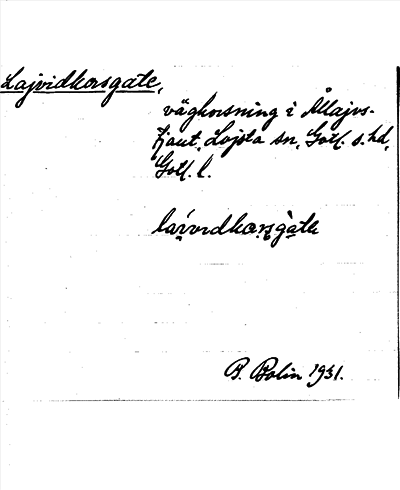 Lajvidkorsgate,
vägkorsning i Ållajvs-
kjaut, Lojsta sn, Gotl. s. hd,
Gotl. l.
B. Bolin 1931.